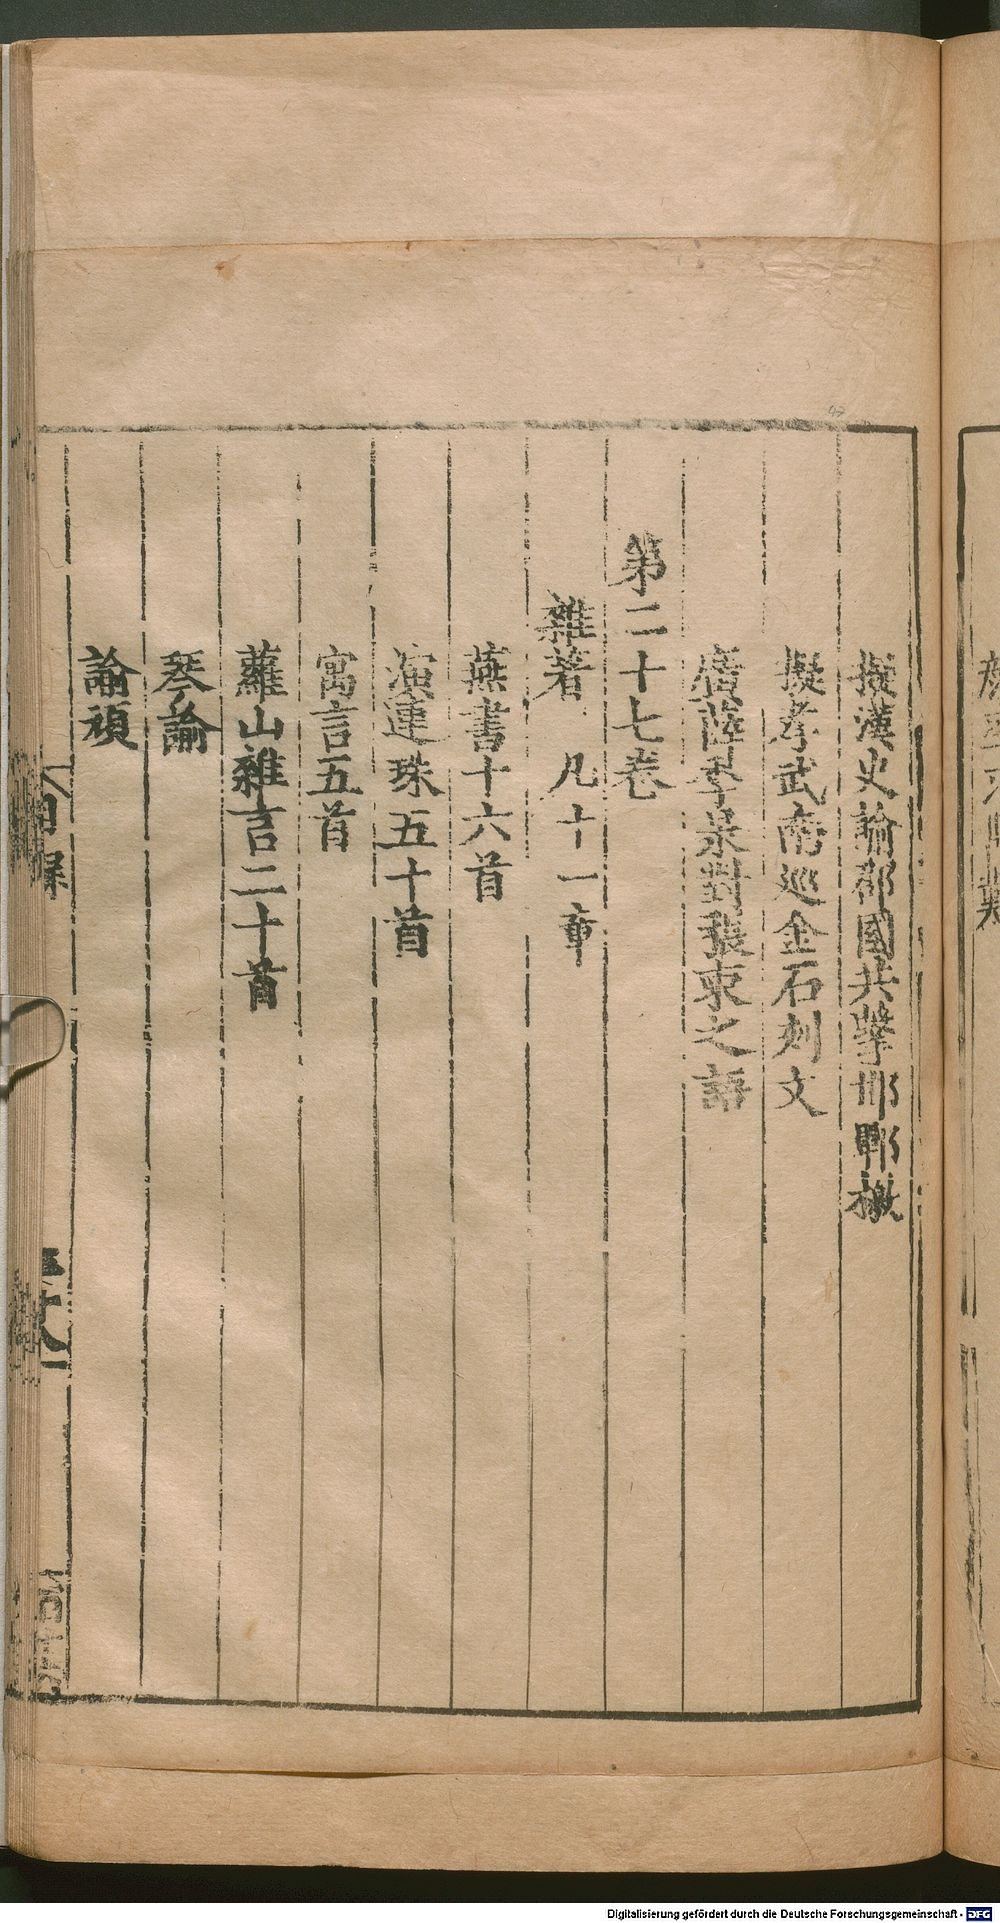 擬漢史論郡國共擊邯鄲檄
擬孝武南巡金石刻文
廣薛季昶對張柬之語
第二十七卷
雜著 凡十一章
燕書十六首
演連珠五十首
寓言五首
蘿山雜言二十首
琴諭
諭頑
目錄
47
Digitalisierung gefördert durch die Deutsche Forschungsgemeinschaft - DFG